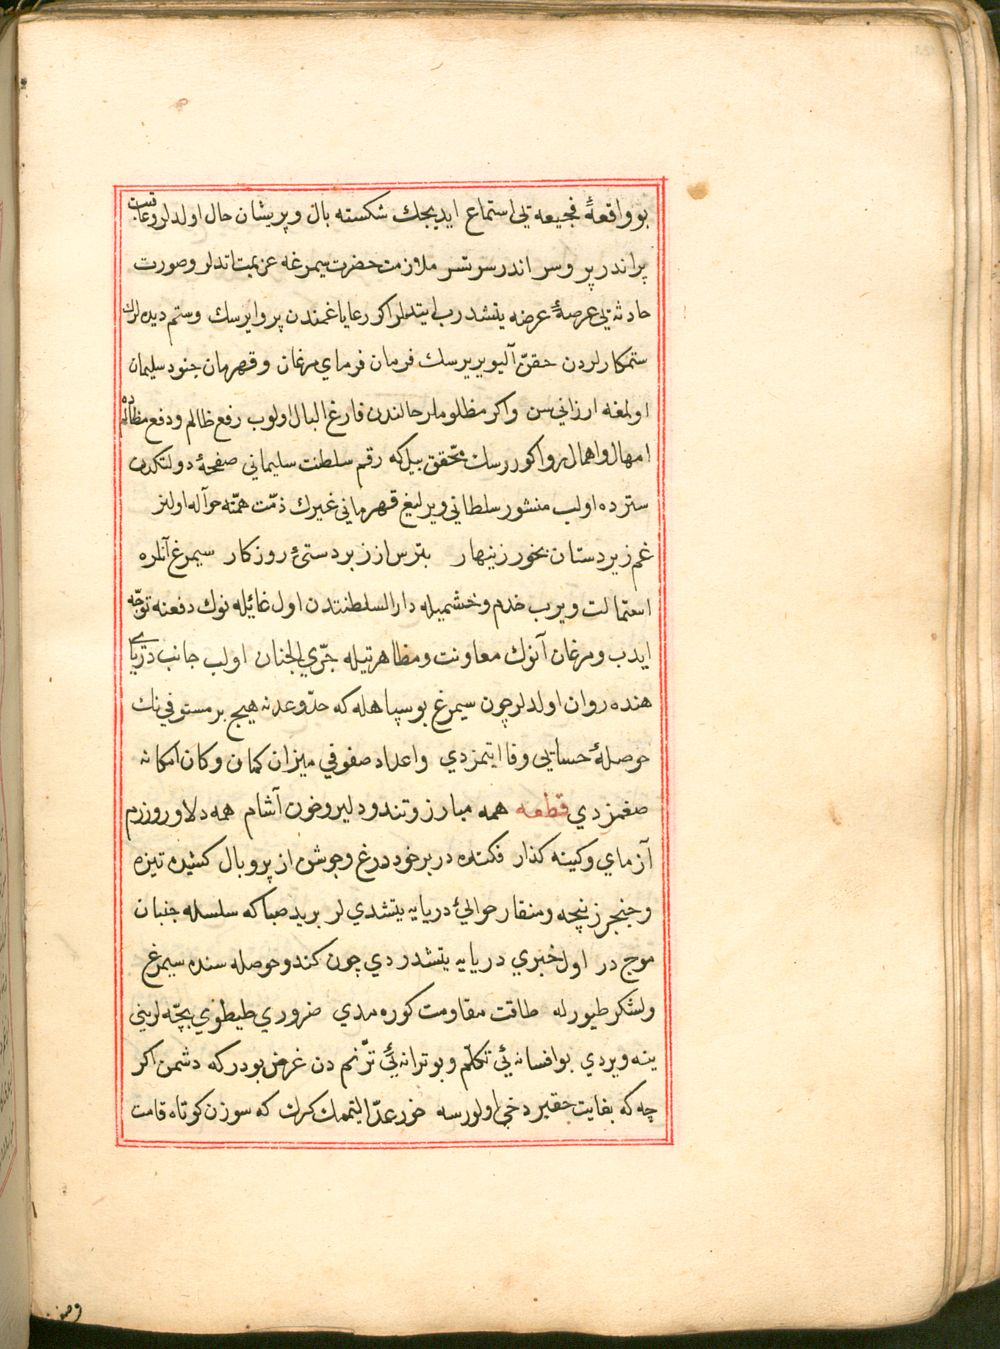 بو واقعۀ فجیعه یی استماع ایدیجك شکسته بال و پریشان حال اولدلر و عاقبت
پر اندر پر و سر اندر سر تسر ملازمت حضرت سیمرغه عزیمت اتدلر و صورت
حادثه یی عرصۀ عرضه یتشدرب ایتدلر اکر رعایا غمندن پروا یرسك و ستم دیده لرك
ستمکارلردن حقن آلیویریرسك فرمان فرمای مرغان و قهرمان جنود سلیمان
اولمغه ارزانی سن و اکر مظلوملر حالندن فارغ البال اولوب رفع ظالم و دفع مظالمده
امهال و اهمال روا کوررسك محّقق بیل که رقم سلطنت سلیمانی صفحۀ دولتکدن
سترده اولب منشور سلطانی و یرلیغ قهرمانی غیرك ذمّت همّته حوآله اولنر
غم زیردستان بخور زینهار بترس از زبردستئ روزکار سیمرغ آنلره
استمالت ویرب خدم و خشمیله دار السلطنتدن اول غائیله نوك دفعنه توجّه
ایدب و مرغان آنوك معاونت و مظاهرتیله جرّی الجنان اولب جانب دریای
هنده روان اولدلر چون سیمرغ بو سپاهله که حدّ و عدنه هیچ بر مستوفی نك
حوصلۀ حسابی وفا ایتمزدی و اعداد صفوفی میزان کمان و کان امکانه
صغمزدی قطعه همه مبارز و تند و دلیر و خون آشام همه دلاور و رزم
آزمای و کینه کذار فکنده در بر خود درغ و جوشن از پر و بال کشیده تیزه
و خنجر ز پنچه و منقار حوالئ دریایه یتشدی لر برید صبا که سلسله جنبان
موج در اول خبری دریایه یتشدردی چون کندو حوصله سنده سیمرغ
و لشکر طیور له طاقت مقاومت کوره مدی ضروری طیطوی بچّه لرینی
ینه ویردی بو افسانه ئی تکلّم و بو ترانه یئ ترّنم دن غرض بودرکه دشمن اکر
چه که بغایت حقیر دخی اولورسه خور عدّ ایتممك کرك که سوزن کوتاه قامت